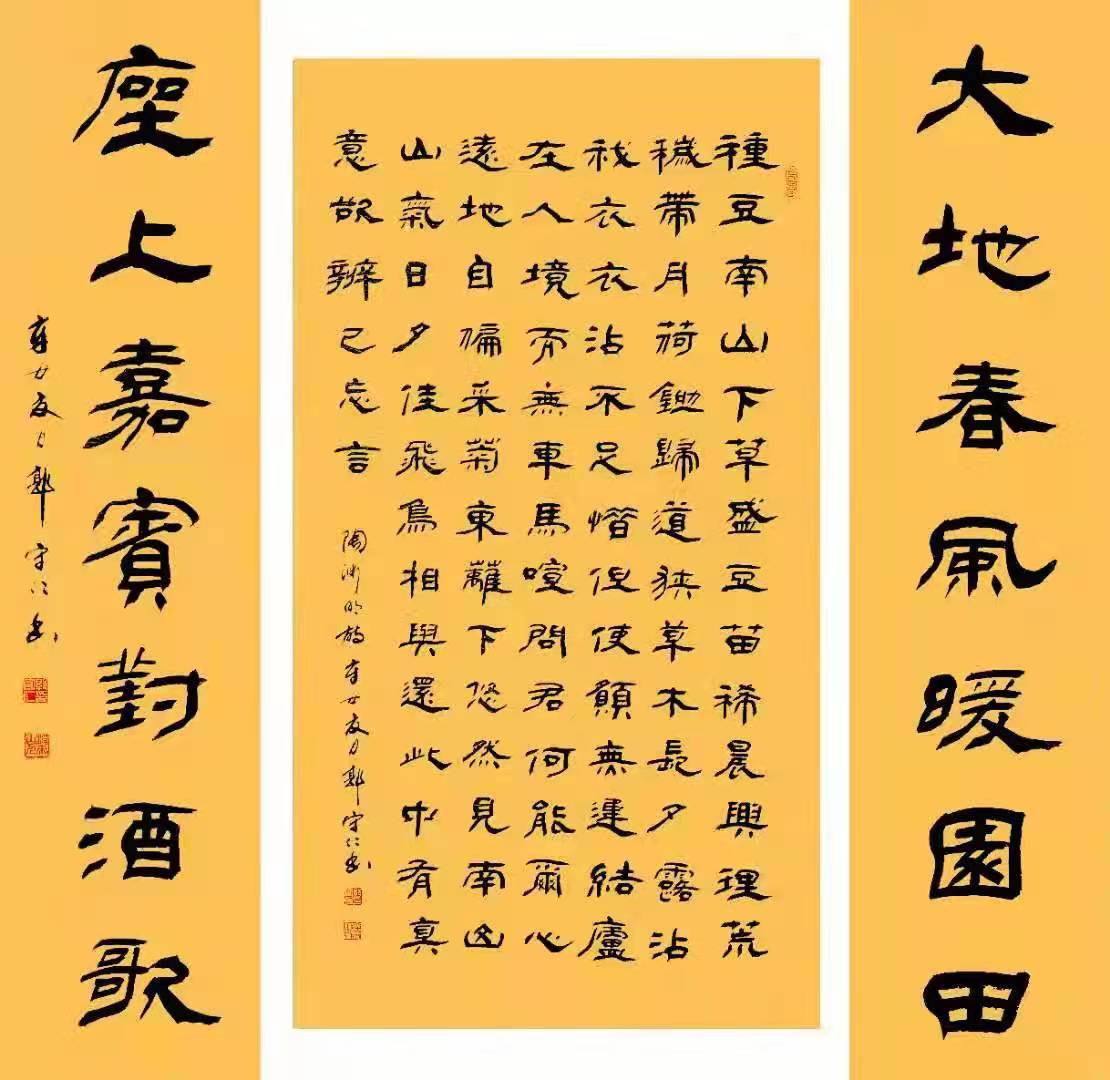 大地春風暖園田
種豆南山下草盛豆苗稀晨興理荒
穢帶月荷鋤歸道狹草木長夕露沾
我衣衣沾不足惜但使願無違結廬
在人境而無車馬喧問君何能爾心
遠地自偏采菊東籬下悠然見南山
山氣日夕佳飛鳥相與還此中有真
意欲辨已忘言
陶淵明詩 夏月 守仁書
座上嘉賓對酒歌
夏月 守仁書